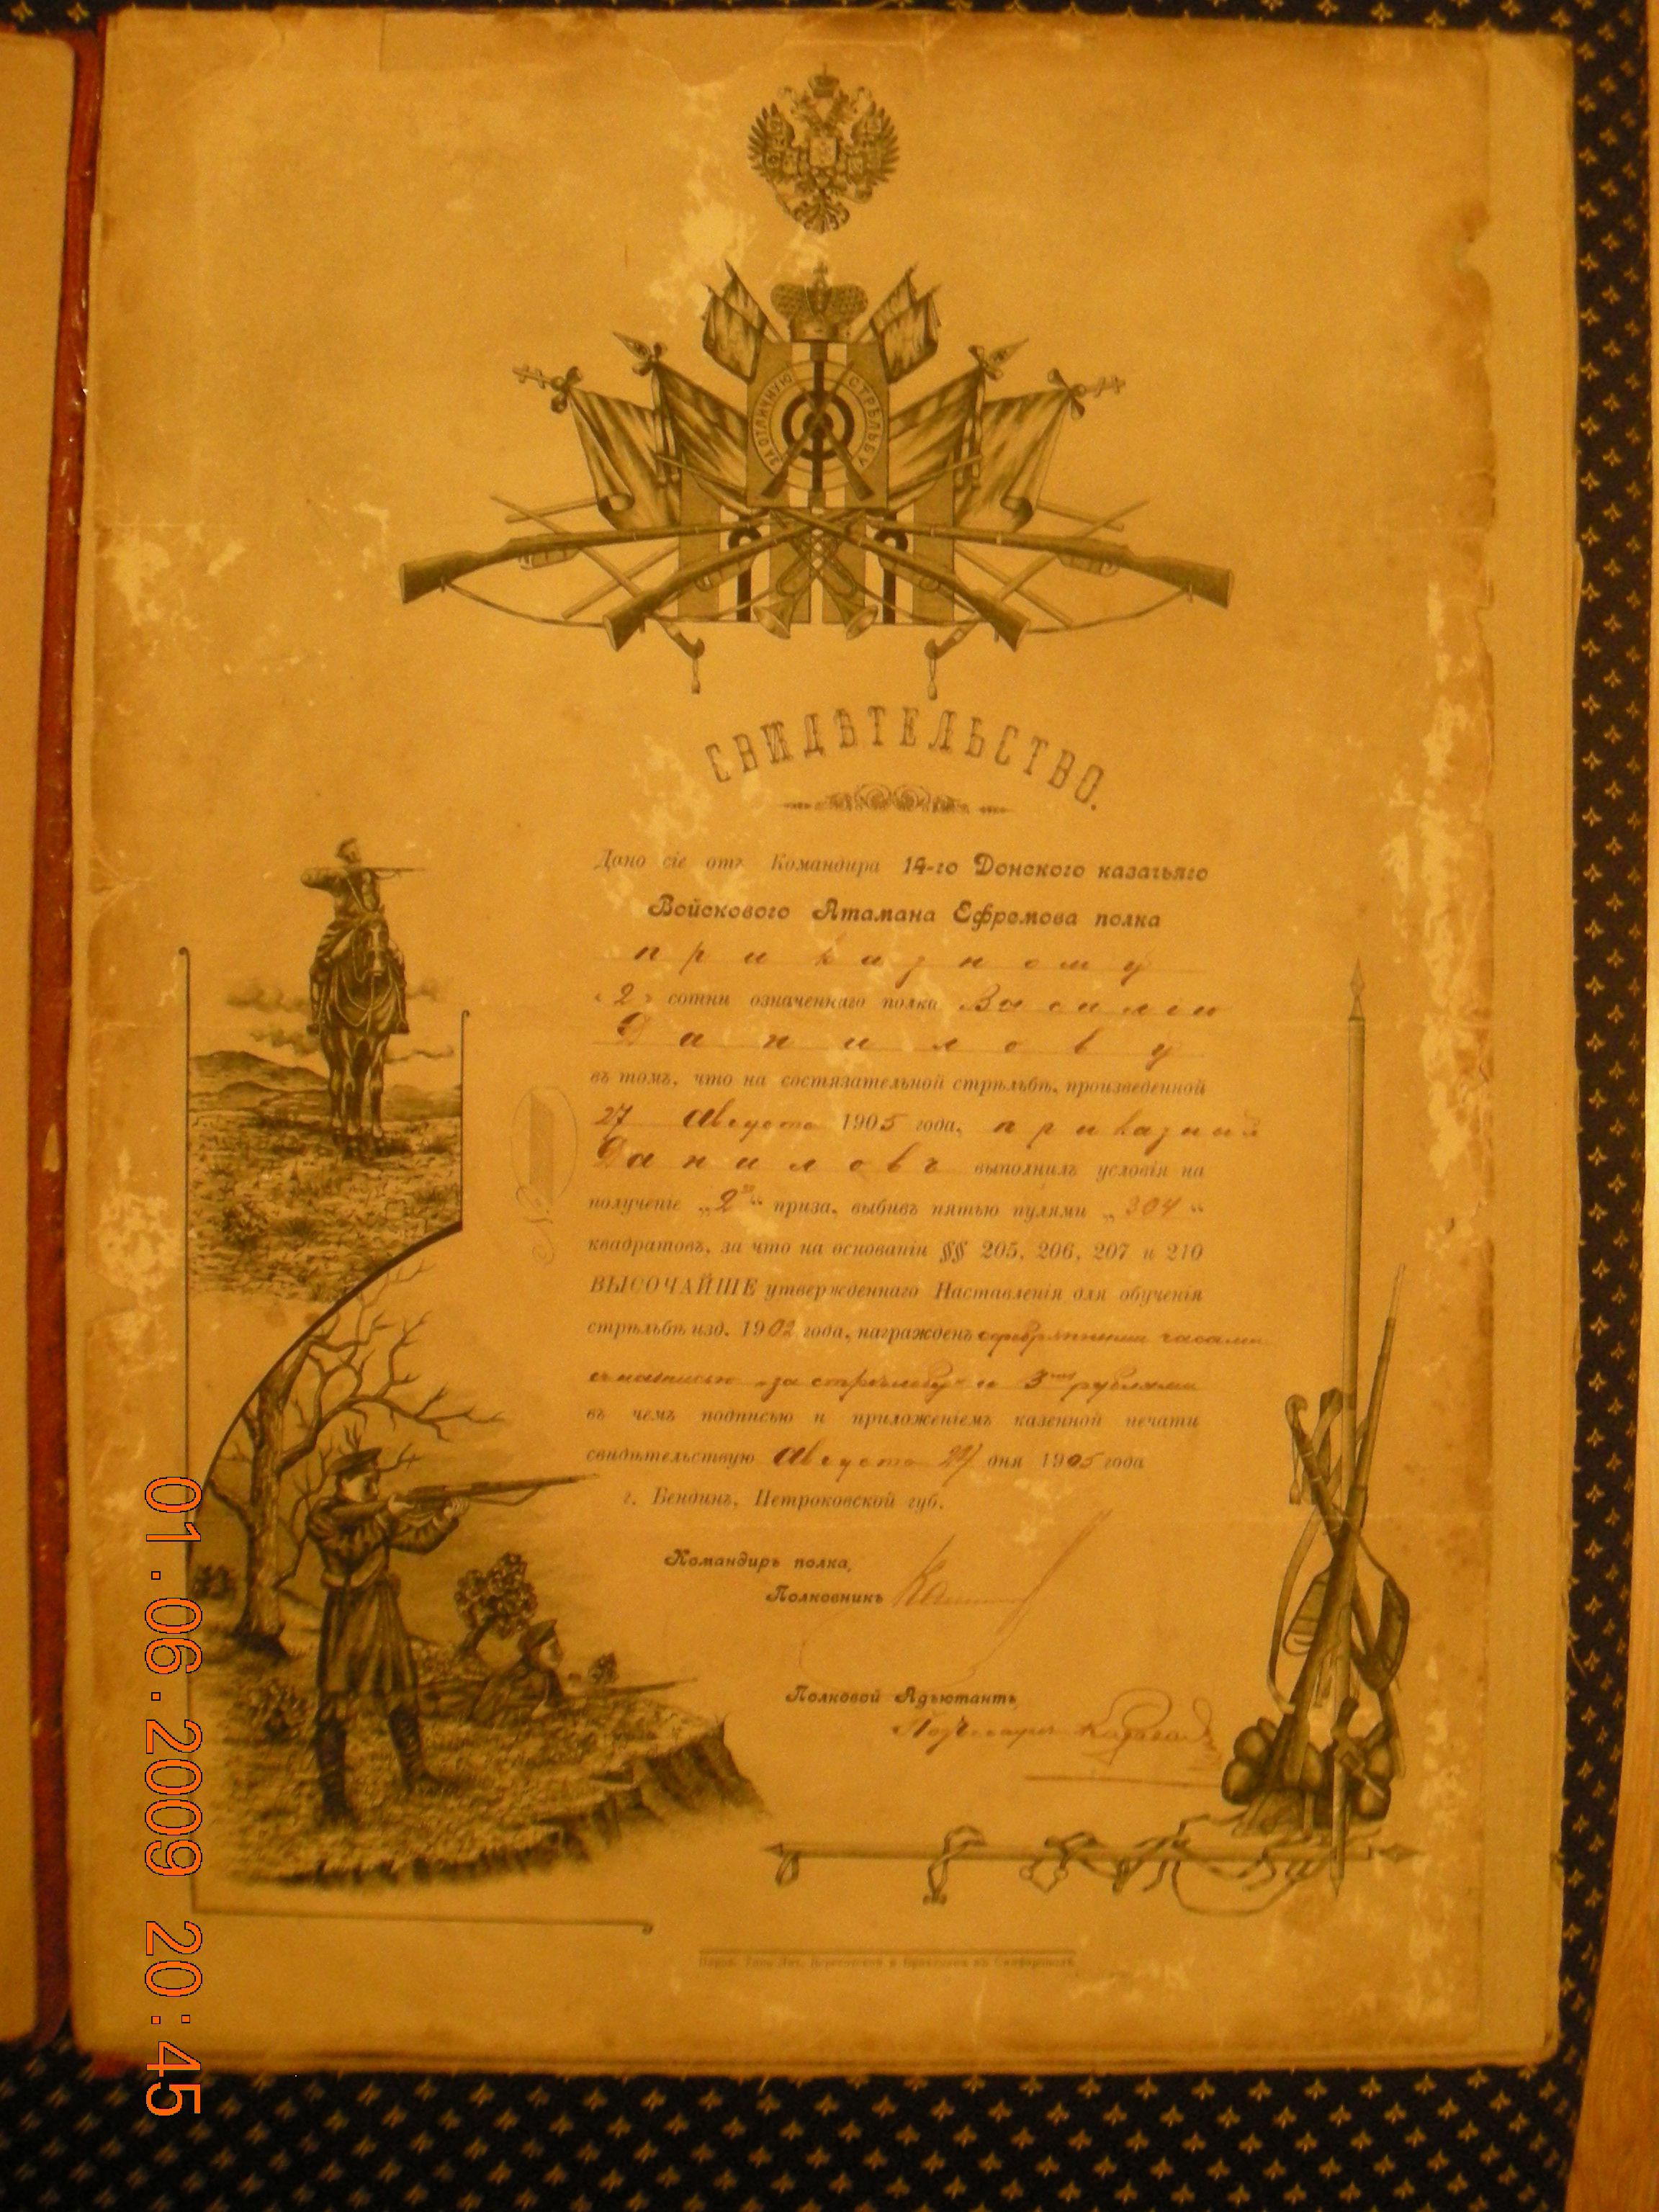 ЗА ОТЛИЧНУЮ СТРѢЛЬБУ
СВИДѢТЕЛЬСТВО.
Дано сіе отъ Командира 14-го Донского казачьяго
Войскового Атамана Ефремова полка
приказному
«2» сотни означеннаго полка Василію
Данилову
въ томъ, что на состязательной стрѣльбѣ, произведенной
27 Августа 1905 года, приказный
Даниловъ выполнилъ условія на
полученіе „2го“ приза, выбивъ пятью пулями „304“
квадратовъ, за что на основаніи §§ 205, 206, 207 и 210
ВЫСОЧАЙШЕ утвержденнаго Наставленія для обученія
стрѣльбѣ изд. 1902 года, награжденъ серебрянными часами
съ надписью „за стрѣльбу“ и 3мя рублями
въ чемъ подписью и приложеніемъ казенной печати
свидѣтельствую Августа 27 дня 1905 года
г. Бендинъ, Петроковской губ.
Командиръ полка,
Полковникъ
Полковой Адъютантъ,
Подъесаулъ
№
01.06.2009 20:45